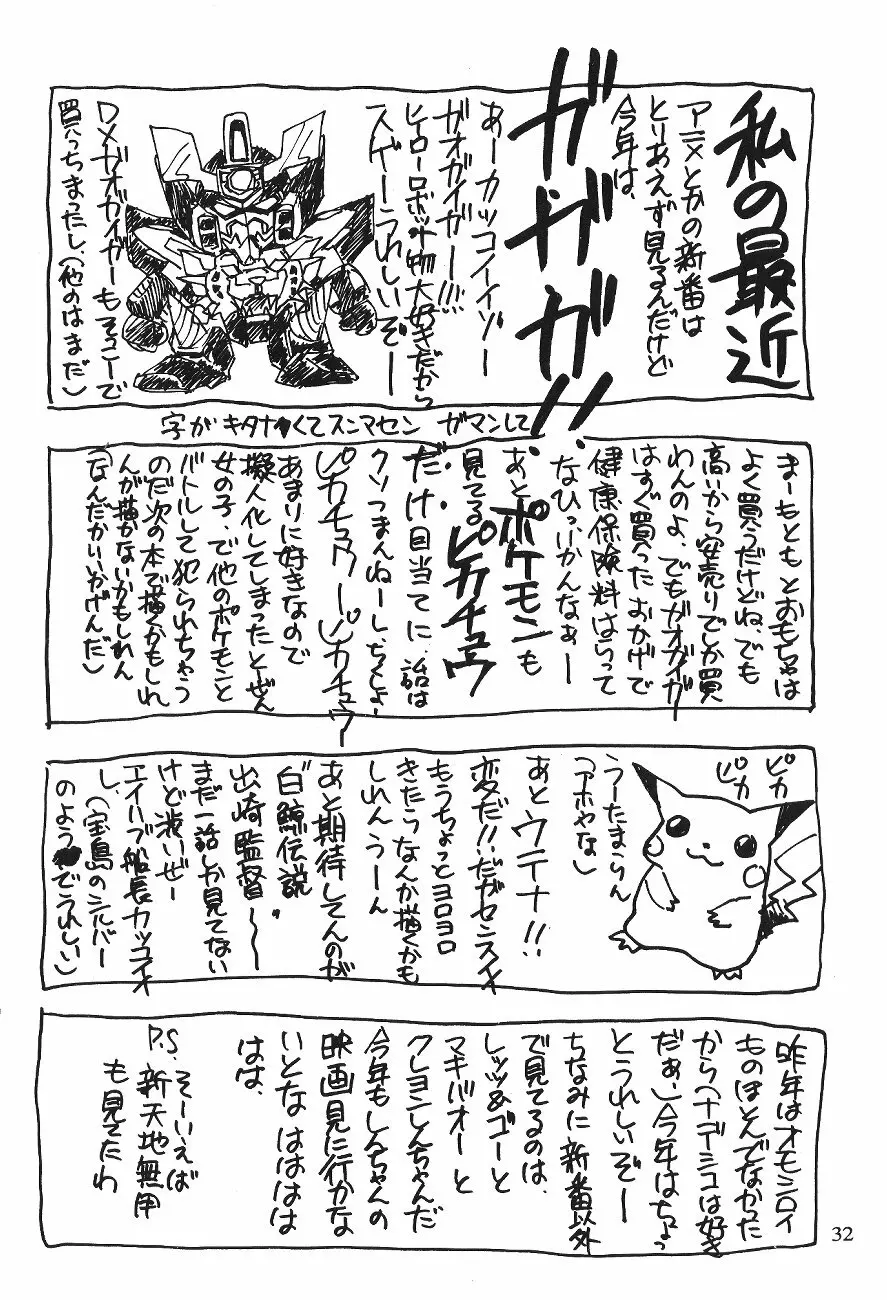 私の最近
アニメとかの新番は
とりあえず見るんだけど
今年は、
ガガガ!!
あーカッコイイゾー
ガオガイガー!!!
ヒーローロボット物大好きだから
スゲーうれしいぞー
DXガオガイガーもそっこーで
買っちまったし、(他のはまだ)
字がキタナくてスンマセン ガマンして
まーもともとおもちゃは
よく買うだけどね、でも
高いから安売りでしか買
わんのよ、でもガオガイガー
はすぐ買ったおかげで
健康保険料はらって
なひっ、いかんなぁー
あとポケモンも
見てるピカチュウ
だけ目当てに、話は
クソつまんねーし、ちくしょー
ピカチュウーピカチュウー
あまりに好きなので
擬人化してしまったとーぜん
女の子、で他のポケモンと
バトルして犯られちゃう
のだ次の本で描くかもしれ
んが描かないかもしれん
(なんだかいいかげんだ)
ピカ
ピカ
うーたまらん
(アホやな)
あとウテナ!!
変だ!!だがセンスイイ
もうちょっとヨロヨロ
きたらなんか描くかも
しれんうーん
あと期待してんのが
"白鯨伝説"
出崎監督ー〜
まだ一話しか見てない
けど渋いぜー
エイハブ船長カッコイイ
し、(宝島のシルバー
のようでうれしい)
昨年はオモシロイ
ものほとんでなかった
から(ナデシコは好き
だぁー)今年はちょっ
とうれしいぞー
ちなみに新番以外
で見てるのは、
レッツ&ゴーと
マキバオーと
クレヨンしんちゃんだ
今年もしんちゃんの
映画見に行かな
いとな はははは
はは、
P.S. そーいえば
新天地無用
も見てたわ
32